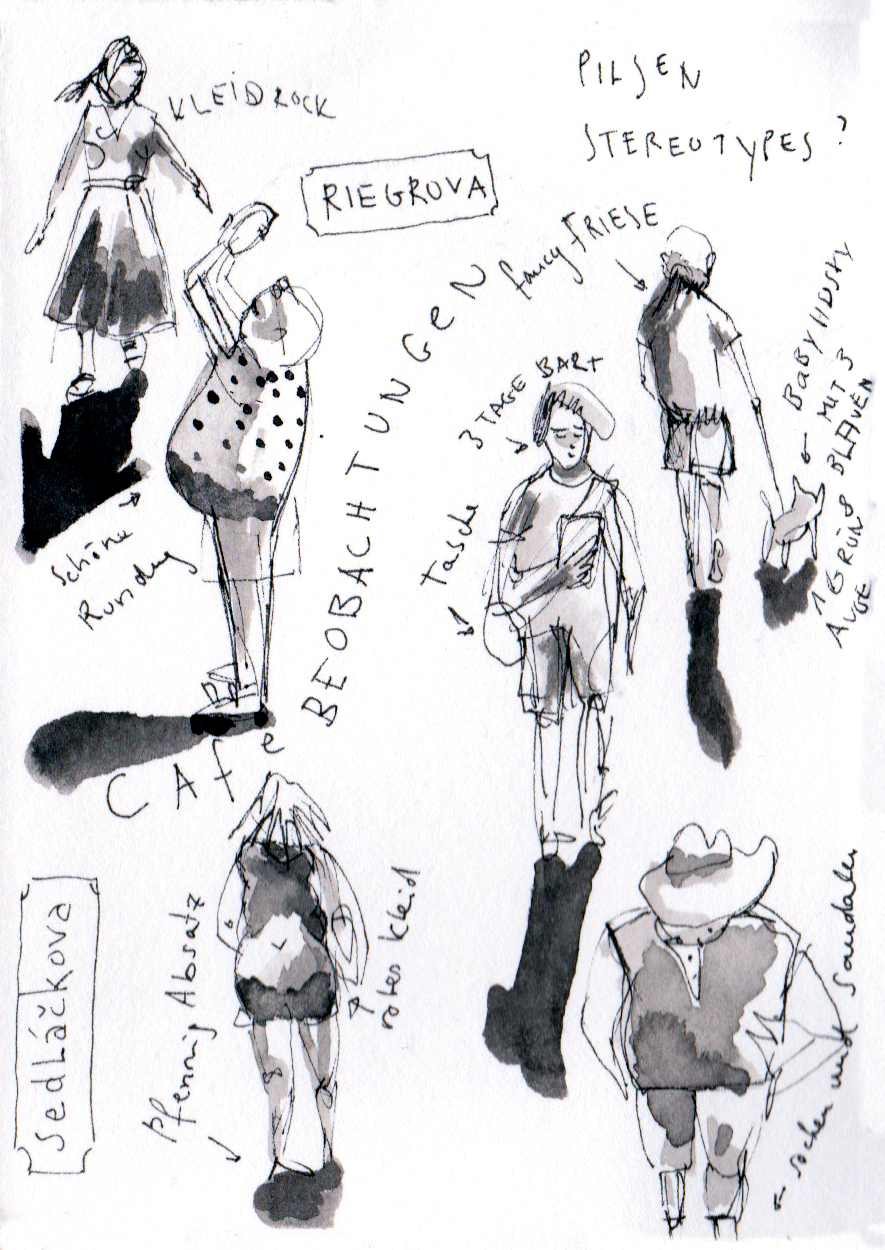 PILSEN
STEREOTYPES?
KLEIDROCK
RIEGROVA
fancy FRIESE
3 TAGE BART
BABYHUSKY
MIT 3
BLAUEN
1 GRÜN
AUGE
Tasche
Schöne
Rundung
BEOBACHTUNGEN
CAFE
Sedláčkova
Pfennig Absatz
rotes Kleid
socken und Sandalen